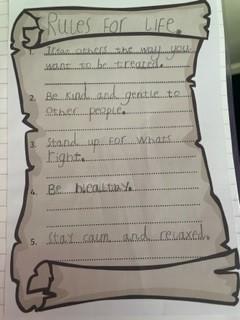 RULES FOR LIFE.
1. Treat others the way you
want to be treated.
2. Be kind and gentle to
other people.
3. Stand up for whats
right.
4. Be healthy.
5. Stay calm and relaxed.